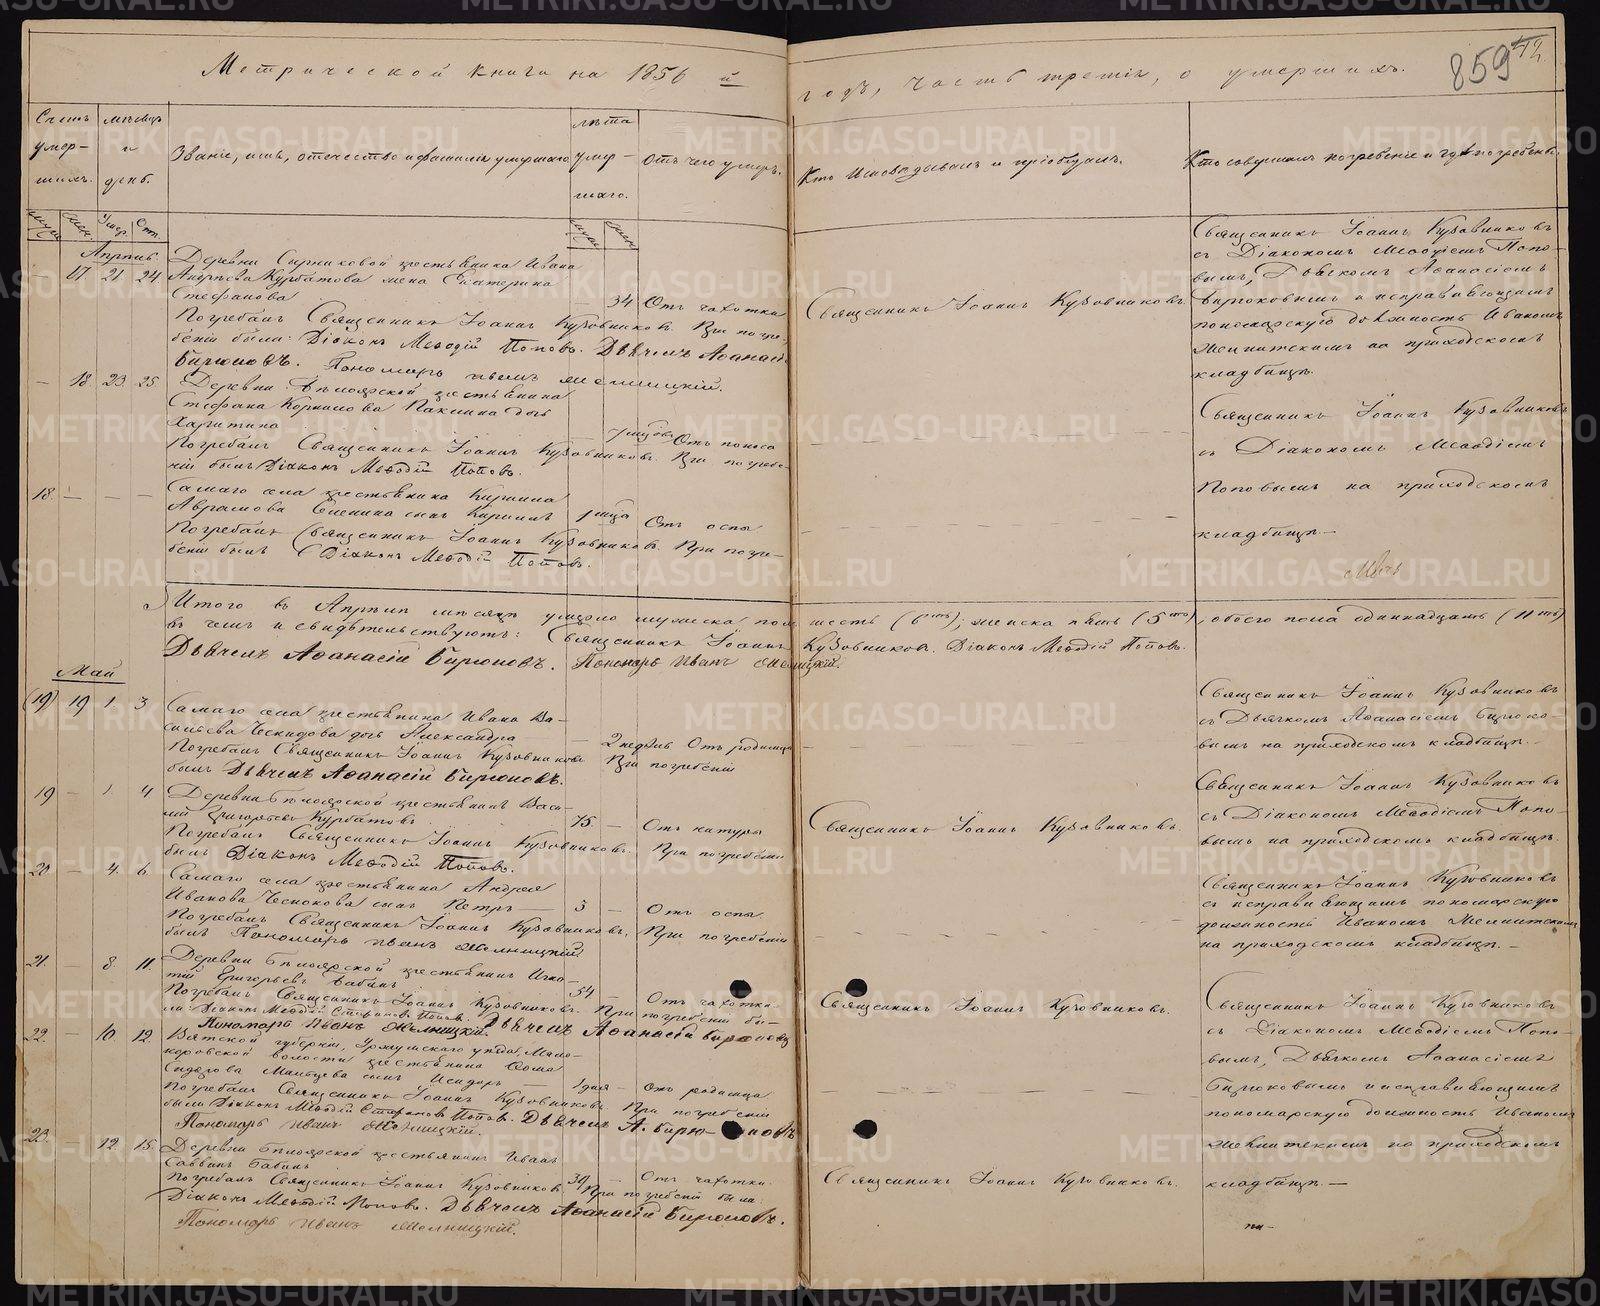 Метрической книги на 1856 й годъ, часть третія, о умершихъ.
859
Счетъ умер-шихъ.
мѣсяцъ и день.
Званіе, имя, отечество и фамилія умершаго
лѣта умер-шаго.
Отъ чего умеръ.
Кто исповѣдывалъ и пріобщалъ.
Кто совершалъ погребеніе и гдѣ погребены.
Апрѣль
17 21 24 Деревни крестьянина Ивана
Андреева Курбатова жена Екатерина
Стефанова 34 Отъ чахотки
Священникъ Іоаннъ Кузовниковъ.
Погребалъ Священникъ Іоаннъ Кузовниковъ. При погре-
беніи были: Діаконъ Меѳодій Поповъ. Дьячекъ Аѳанасій
Бирюковъ. Пономарь Иванъ Мелницкій.
Священникъ Іоаннъ Кузовниковъ
съ Діакономъ Меѳодіемъ Попо-
вымъ, Дьячкомъ Аѳанасіемъ
Бирюковымъ и исправляющимъ
пономарскую должность Иваномъ
на приходскомъ
кладбищѣ.
— 18 23 25 Деревни Бѣлоярской крестьянина
Стефана Корнилова дочь
Харитина Отъ поноса
Погребалъ Священникъ Іоаннъ Кузовниковъ. При погребе-
ніи былъ Діаконъ Меѳодій Поповъ.
Священникъ Іоаннъ Кузовниковъ
съ Діакономъ Меѳодіемъ
Поповымъ на приходскомъ
кладбищѣ.—
18 — — — Самаго села крестьянина Кирилла
Аврамова сынъ Кириллъ Отъ оспы
Погребалъ Священникъ Іоаннъ Кузовниковъ. При погре-
беніи былъ Діаконъ Меѳодій Поповъ.
Итого въ Апрѣлѣ мѣсяцѣ умерло мужеска пола шесть (6ть); женска пять (5ть), обоего пола одиннадцать (11ть)
въ чемъ и свидѣтельствуютъ: Священникъ Іоаннъ Кузовниковъ. Діаконъ Меѳодій Поповъ.
Дьячекъ Аѳанасій Бирюковъ. Пономарь Иванъ Мелницкій.
Май
(19) 19 1. 3 Самаго села крестьянина Ивана Ва-
сильева дочь Александра — 2 недѣль Отъ родимца
Погребалъ Священникъ Іоаннъ Кузовниковъ При погребеніи
былъ Дьячекъ Аѳанасій Бирюковъ.
Священникъ Іоаннъ Кузовниковъ
съ Дьячкомъ Аѳанасіемъ Бирюко-
вымъ на приходскомъ кладбищѣ.—
19 — 1. 4 Деревни Бѣлоярской крестьянинъ Васи-
лій Григорьевъ Курбатовъ 75. — Отъ натуры
Священникъ Іоаннъ Кузовниковъ.
Погребалъ Священникъ Іоаннъ Кузовниковъ. При погребеніи
былъ Діаконъ Меѳодій Поповъ.
Священникъ Іоаннъ Кузовниковъ
съ Діакономъ Меѳодіемъ Попо-
вымъ на приходскомъ кладбищѣ.
20 — 4. 6. Самаго села крестьянина Андрея
Иванова Чеснокова сынъ Петръ — 3 — Отъ оспы
Погребалъ Священникъ Іоаннъ Кузовниковъ. При погребеніи
былъ Пономарь Иванъ Мелницкій
Священникъ Іоаннъ Кузовниковъ
съ исправляющимъ пономарскую
должность Иваномъ
на приходскомъ кладбищѣ.—
21. — 8. 11. Деревни Бѣлоярской крестьянинъ Игна-
тій Григорьевъ Бабинъ 54 — Отъ чахотки
Священникъ Іоаннъ Кузовниковъ.
Погребалъ Священникъ Іоаннъ Кузовниковъ. При погребеніи бы-
ли Діаконъ Меѳодій Стефановъ Поповъ.
Пономарь Иванъ Мелницкій. Дьячекъ Аѳанасій Бирюковъ
Священникъ Іоаннъ Кузовниковъ
съ Діакономъ Меѳодіемъ Попо-
вымъ, Дьячкомъ Аѳанасіемъ
Бирюковымъ и исправляющимъ
пономарскую должность Иваномъ
на приходскомъ
кладбищѣ.—
22. — 10. 12. Вятской губерніи, Уржумскаго уѣзда,
волости крестьянина Ѳома
сынъ Исидоръ — 1 дня — Отъ родимца
Погребалъ Священникъ Іоаннъ Кузовниковъ При погребеніи
были Діаконъ Меѳодій Стефановъ Поповъ. Дьячекъ А. Бирюковъ
Пономарь Иванъ Мелницкій.
23. — 12. 15. Деревни Бѣлоярской крестьянинъ Иванъ
Саввинъ Бабинъ 39 — Отъ чахотки
Священникъ Іоаннъ Кузовниковъ.
Погребалъ Священникъ Іоаннъ Кузовниковъ При погребеніи были:
Діаконъ Меѳодій Поповъ. Дьячекъ Аѳанасій Бирюковъ.
Пономарь Иванъ Мелницкій.
METRIKI.GASO-URAL.RU